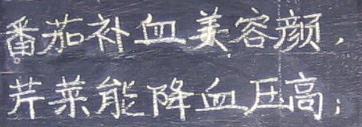 番茄补血美容颜，
芹菜能降血压高；